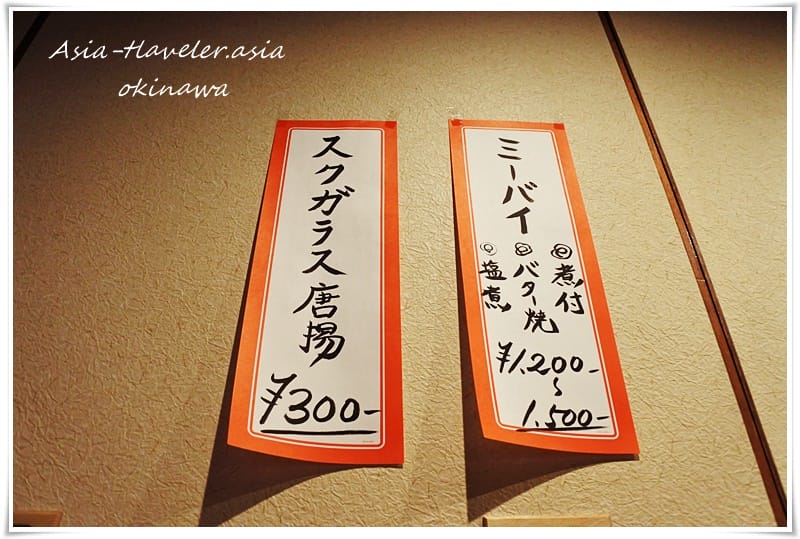 Asia-traveler.asia
okinawa
スクガラス唐揚
¥300-
ミーバイ
◎煮付
◎バター焼
◎塩煮
¥1,200-
〜
1,500-